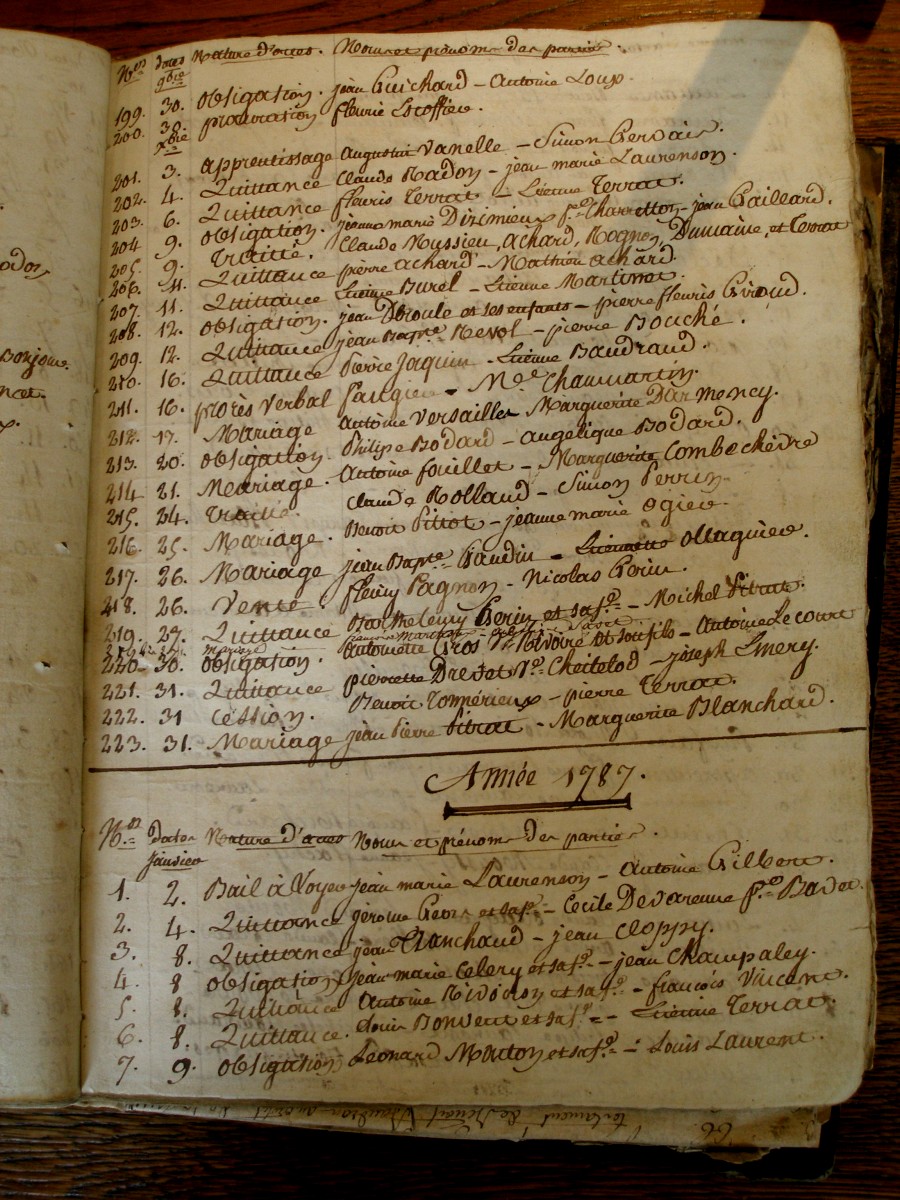 N.os dates Nature d'actes. Noms et prénoms des parties.
9bre
199. 30. obligation. jean Guichard - Antoine Loup.
200. 30. procuration fleurie Escoffier.
xbre
201. 3. apprentissage augustin Vanelle - Simon Gervais.
202. 4. Quittance Claude Nadon - jean marie Laurenson.
203. 6. Quittance fleuris Terrat - Etienne Terrat.
204 9. obligation. jeanne marie Dizimieux f.e Charretton - jean Gaillard.
205. 9. Traitté. Claude Mussieu, Achard, Rognon, Dumaine, et Terrat
206. 11. Quittance pierre achard - Mathieu achard.
207. 11. Quittance Etienne Burel - Etienne Martinot.
208. 12. obligation. jean Deroule et ses enfants - pierre fleuris Giroud.
209. 12. Quittance jean Bapte. Revol - pierre Bouché.
210. 16. Quittance Pierre Jaquin - Etienne Baudrand.
211. 16. procès verbal Saugier - M.de Chaumartin.
212. 17. Mariage Antoine Versailles Marguerite Darmency.
213. 20. obligation. Philipe Bodard - angelique Bodard.
214 21. Mariage. Antoine fouillet - Marguerite Combechèvre
215. 24. Traitté. Claude Rolland - Simon Perrin.
216. 25. Mariage. Benoit Pitiot - jeanne marie Ogier.
217. 26. Mariage jean Bapte. Gaudin - Etiennette Ollagnier.
218. 26. Vente. fleury Pagnon - Nicolas Gerin.
219. 27. Quittance Barthelemy Gerin et sa f.e - Michel Pitrat.
219 bis Mariage
220. 30. obligation. Antoinette Gros V.e Rivoire et son fils - Antoine Lecourt
221. 31. Quittance pierrette Drevet V.e Cheitelod - joseph Emery.
222. 31 Cession. Benoit Tonnérieux - pierre Terrat.
223. 31. Mariage jean Pierre Pitrat - Marguerite Blanchard.
Année 1787.
N.os dates Nature d'actes Noms et prénoms des parties.
janvier
1. 2. Bail à Loyer jean marie Laurenson - Antoine Gilbert.
2. 4. Quittance jérome Geors et sa f.e - Cecile Devarenne f.e Badet.
3. 8. Quittance jean Blanchaud - jean Cloppy.
4. 8 obligation jean marie Celery et sa f.e - jean Champaley.
5. 8. Quittance Antoine Rivoiron et sa f.e - françois Vincent.
6. 8. Quittance. Louis Bonvent et sa f.e - Etienne Terrat.
7. 9. obligation Leonard Maton et sa f.e - Louis Laurent.
66